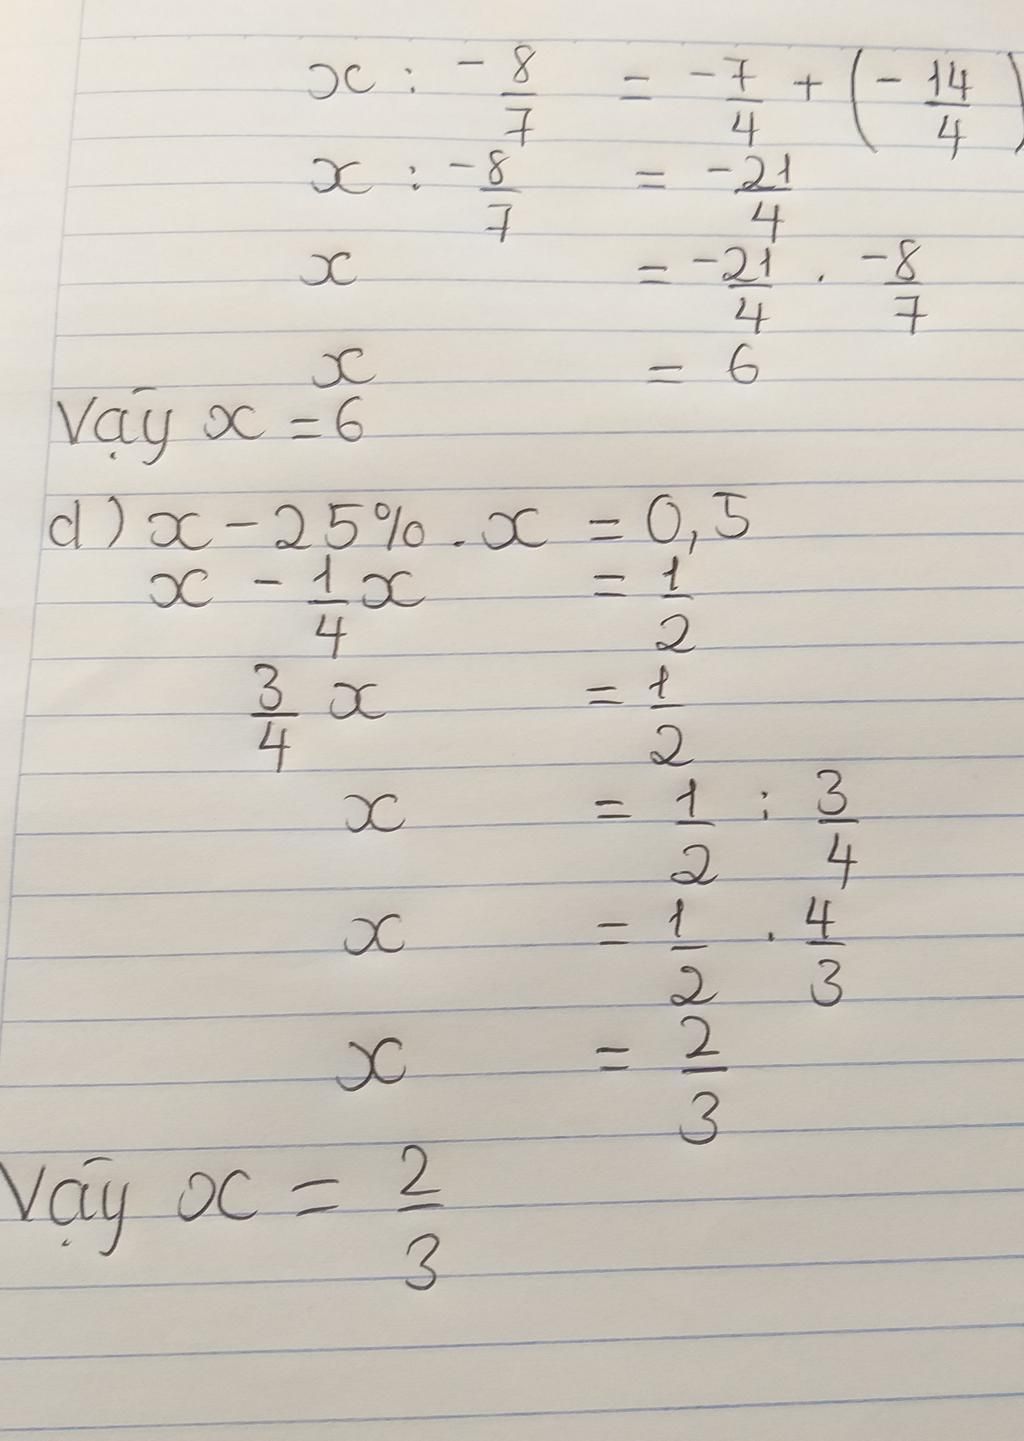 x : -8/7 = -7/4 + (-14/4)
x : -8/7 = -21/4
x = -21/4 . -8/7
x = 6
Vậy x = 6
d) x - 25% . x = 0,5
x - 1/4 x = 1/2
3/4 x = 1/2
x = 1/2 : 3/4
x = 1/2 . 4/3
x = 2/3
Vậy x = 2/3